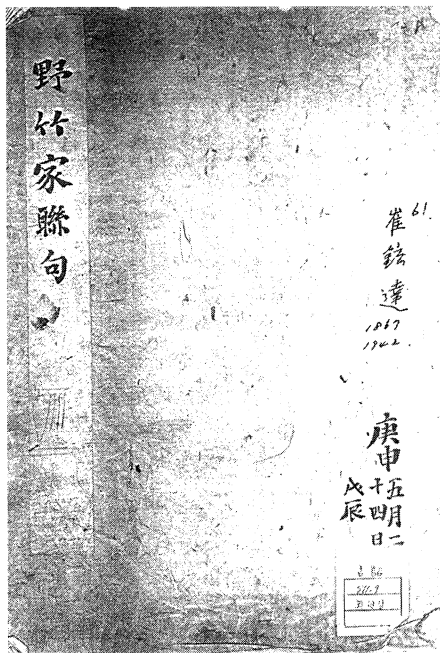 野竹家聯句
61
崔鉉達
1867
1942
庚申五月二
十四日
戊辰